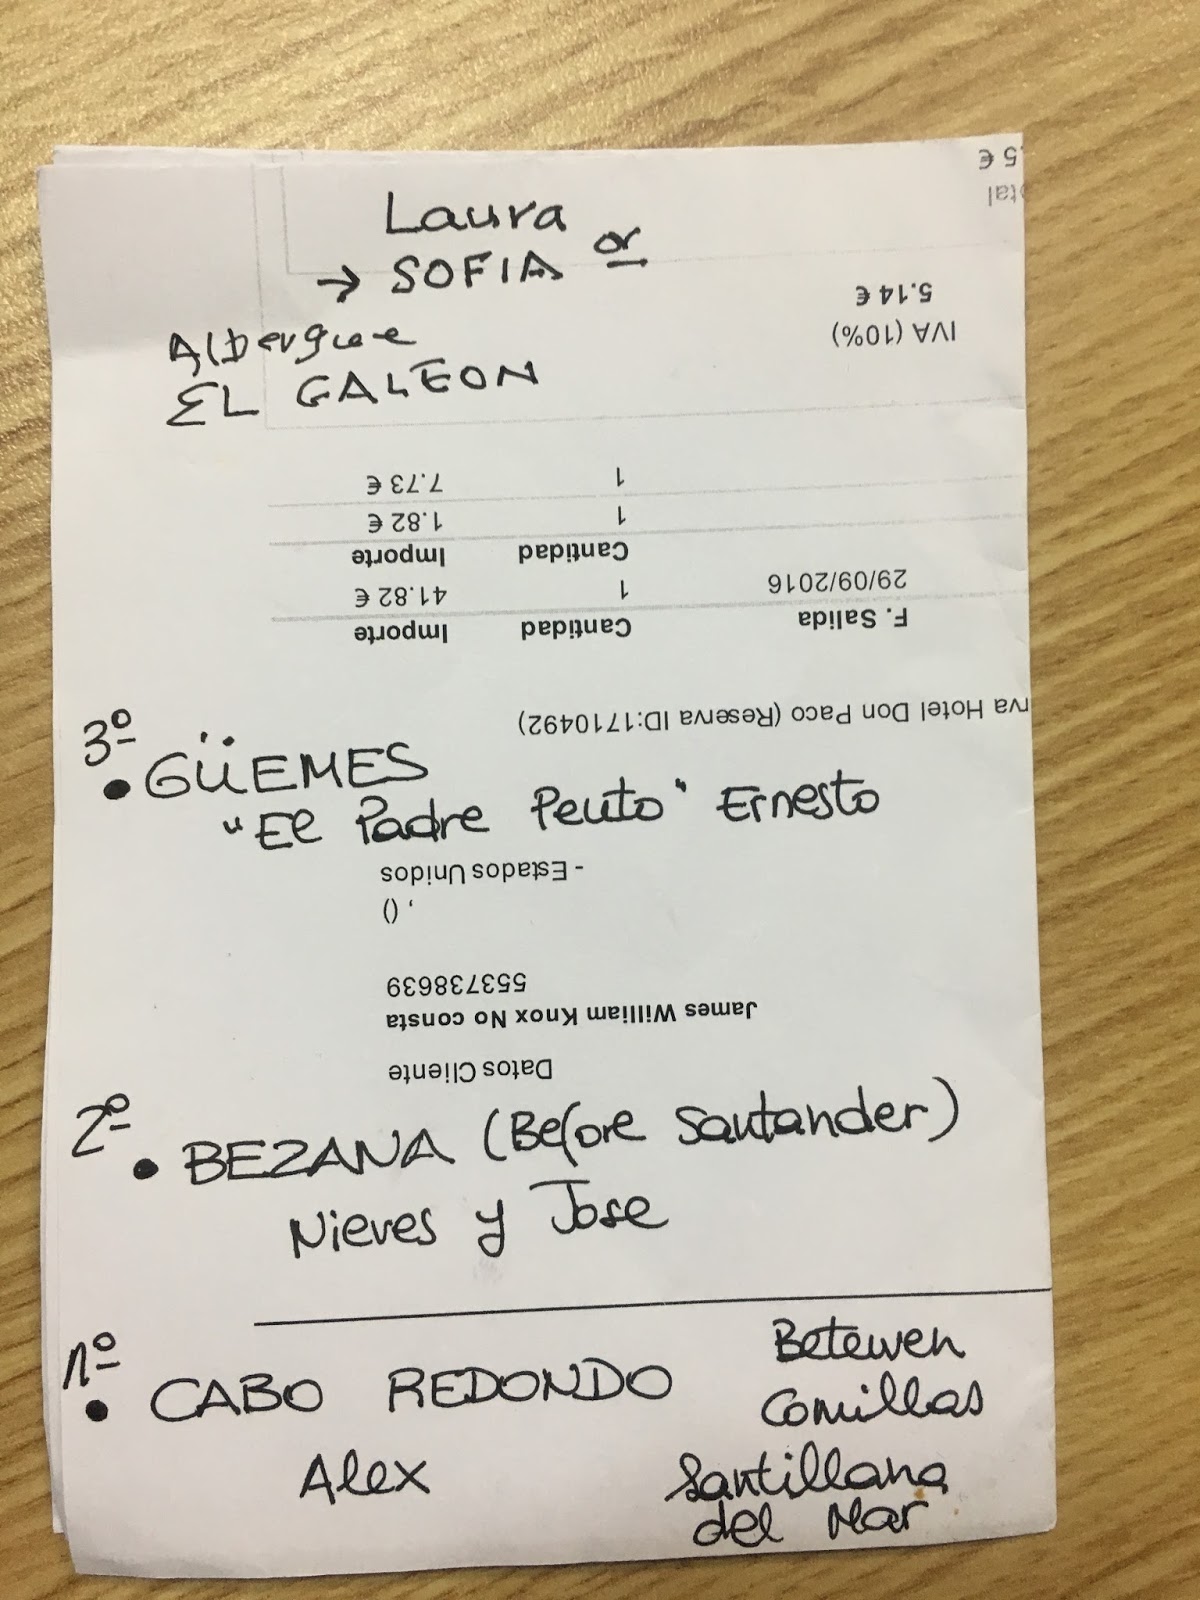 Laura
→ SOFIA or
Albergue
EL GALEON
3º
• GÜEMES
"El Padre Peuto" Ernesto
2º
• BEZANA (Before Santander)
Nieves y Jose
1º
• CABO REDONDO
Alex
Betewen
Comillas
Santillana
del Mar
Datos Cliente
James William Knox No consta
553738639
, ()
- Estados Unidos
rva Hotel Don Paco (Reserva ID:1710492)
F. Salida Cantidad Importe
29/09/2016 1 41.82 €
Cantidad Importe
1 1.82 €
1 7.73 €
IVA (10%)
5.14 €
otal
5 €